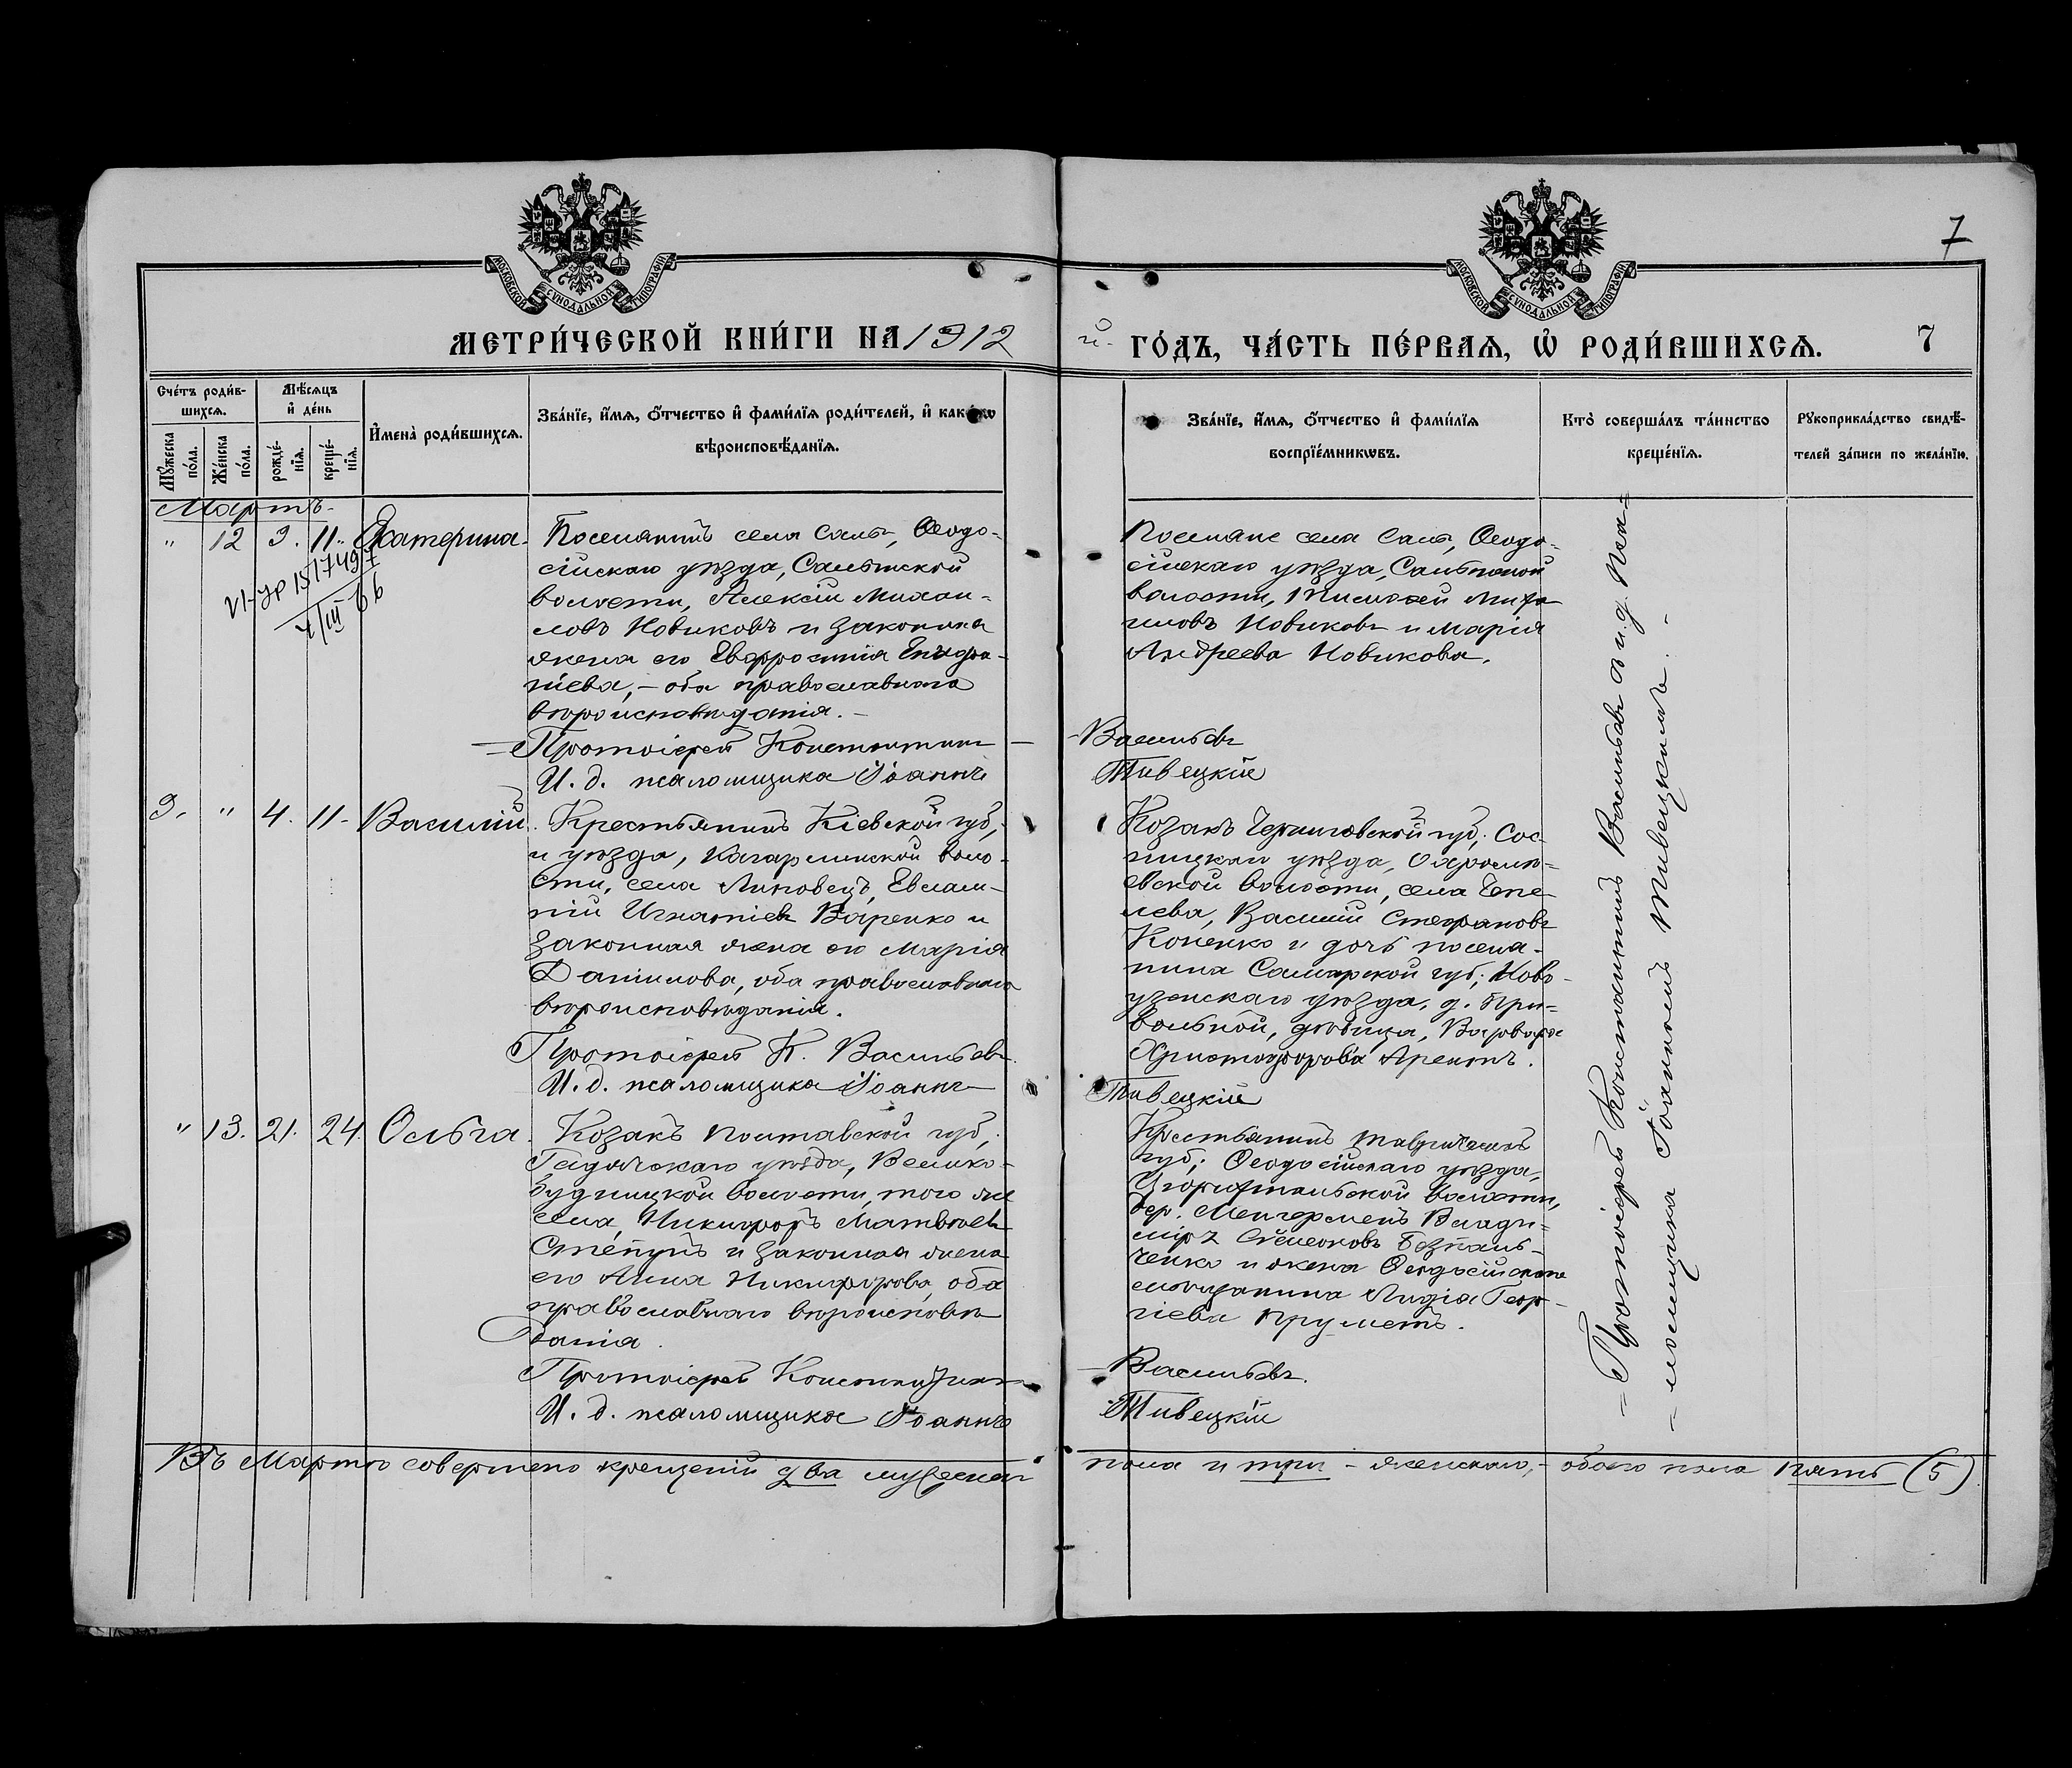 7
МОСКОВСКОЙ СѴНОДАЛЬНОЙ ТИПОГРАФІИ
МОСКОВСКОЙ СѴНОДАЛЬНОЙ ТИПОГРАФІИ
МЕТРИ́ЧЕСКОЙ КНИ́ГИ НА 1912 й. ГО́ДЪ, ЧА́СТЬ ПЕ́РВАѦ, Ѡ҆ РОДИ́ВШИХСѦ. 7
Сче́тъ роди́вшихсѧ.
Мꙋ́жеска по́ла.
Же́нска по́ла.
Мѣ́сѧцъ и҆ де́нь
рожде́нїѧ.
креще́нїѧ.
И҆мена̀ роди́вшихсѧ.
Зва́нїе, и҆́мѧ, ѻ҆́тчество и҆ фами́лїѧ роди́телей, и҆ како́гѡ
вѣроисповѣ́данїѧ.
Зва́нїе, и҆́мѧ, ѻ҆́тчество и҆ фами́лїѧ
воспрїе́мникѡвъ.
Кто̀ соверша́лъ та́инство
креще́нїѧ.
Рꙋкоприкла́дство свидѣ́-
телей за́писи по жела́нїю.
Мартъ.
" 12 9. 11. Екатерина.
Поселянинъ села Салы, Ѳеодо-
сійскаго уѣзда, Салынской
волости, Алексій Михаи-
ловъ Новиковъ и законная
жена его Евфросинія Епифа-
ніева, – оба православнаго
вѣроисповѣданія. –
Протоіерей Константинъ –
И. д. псаломщика Іоаннъ
Поселяне села Салы, Ѳеодо-
сійскаго уѣзда, Салынской
волости, Тимоѳей Михаи
ловъ Новиковъ и Марія
Андреева Новикова.
Васильевъ
Тивецкій
9. " 4. 11. Василій.
Крестьянинъ Кіевской губ.,
и уѣзда, Кагарлинской воло-
сти, села Липовецъ, Евлам-
пій Игнатіевъ
законная жена его Марія
Данилова, оба православнаго
вѣроисповѣданія.
Протоіерей К. Васильевъ.
И. д. псаломщика Іоаннъ
Козакъ Черниговской губ., Сос-
ницкаго уѣзда,
волости, села
Василій Стефановъ
и дочь поселя-
нина Самарской губ., Ново-
узенскаго уѣзда, д. При-
вольной, дѣвица, Варвара
Христофорова Арентъ.
Тивецкій
" 13. 21. 24. Ольга.
Козакъ Полтавской губ.,
Гадячскаго уѣзда, Велико-
будницкой волости, того же
села, Никифоръ Матвѣевъ
Степунъ и законная жена
его Анна Никифорова, оба
православнаго вѣроисповѣ
данія.
Протоіерей Константинъ
И. д. псаломщика Іоаннъ
Крестьянинъ Таврической
губ., Ѳеодосійскаго уѣзда,
волости,
дер. Влади-
міръ Симеоновъ Безпаль-
ченко и жена Ѳеодосійскаго
мѣщанина Лидія Геор-
гіева
Васильевъ.
Тивецкій
= Протоіерей Константинъ Васильевъ и и. д. пса=
= ломщика Іоаннъ Тивецкій. –
Въ Мартѣ совершено крещеній два мужескаго пола и три – женскаго, – обоего пола пять (5)